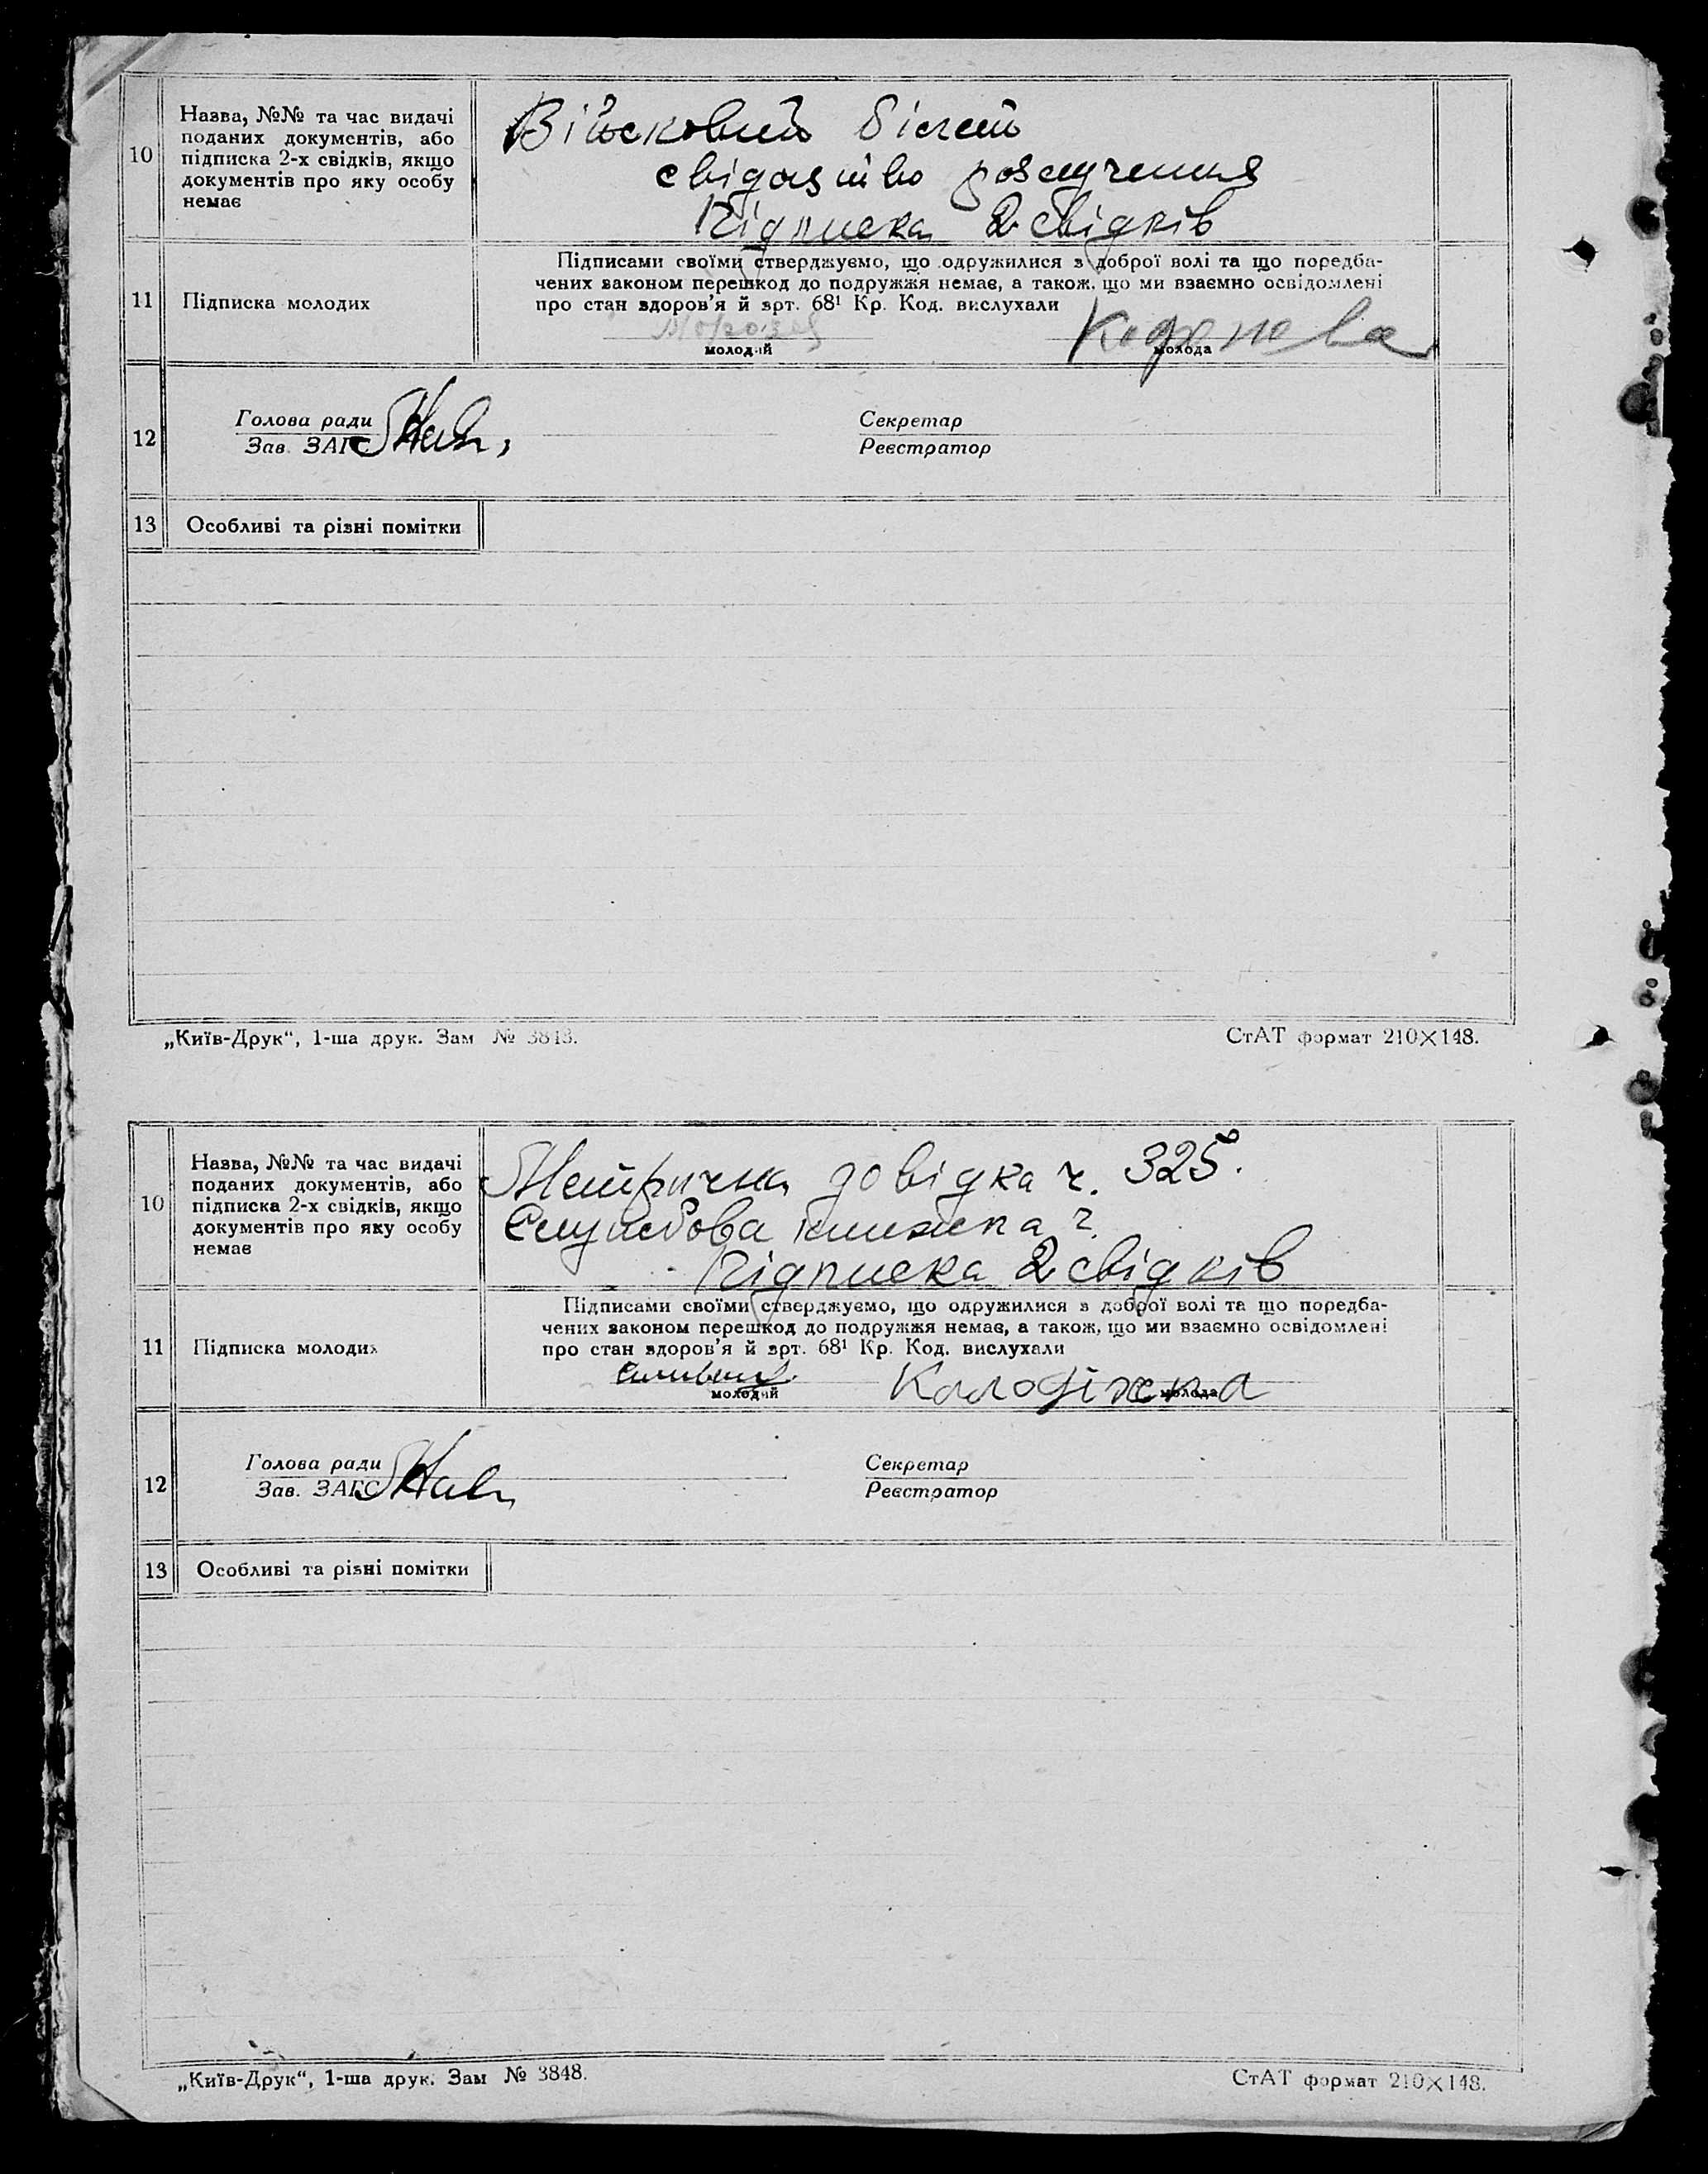 10
Назва, №№ та час видачі
поданих документів, або
підписка 2-х свідків, якщо
документів про яку особу
немає
Військовий білет
свідоцтво розлучення
Підписка 2 свідків
11
Підписка молодих
Підписами своїми стверджуємо, що одружилися з доброї волі та що передба-
чених законом перешкод до подружжя немає, а також, що ми взаємно освідомлені
про стан здоров'я й арт. 68¹ Кр. Код. вислухали
молодий
молода
12
Голова ради
Зав. ЗАГС
Секретар
Реєстратор
13
Особливі та різні помітки
„Київ-Друк“, 1-ша друк. Зам № 3848.
СтАТ формат 210×148.
10
Назва, №№ та час видачі
поданих документів, або
підписка 2-х свідків, якщо
документів про яку особу
немає
Метрична довідка ч. 325.
Службова книжка ч.
Підписка 2 свідків
11
Підписка молодих
Підписами своїми стверджуємо, що одружилися з доброї волі та що передба-
чених законом перешкод до подружжя немає, а також, що ми взаємно освідомлені
про стан здоров'я й арт. 68¹ Кр. Код. вислухали
молодий
молода
12
Голова ради
Зав. ЗАГС
Секретар
Реєстратор
13
Особливі та різні помітки
„Київ-Друк“, 1-ша друк. Зам № 3848.
СтАТ формат 210×148.